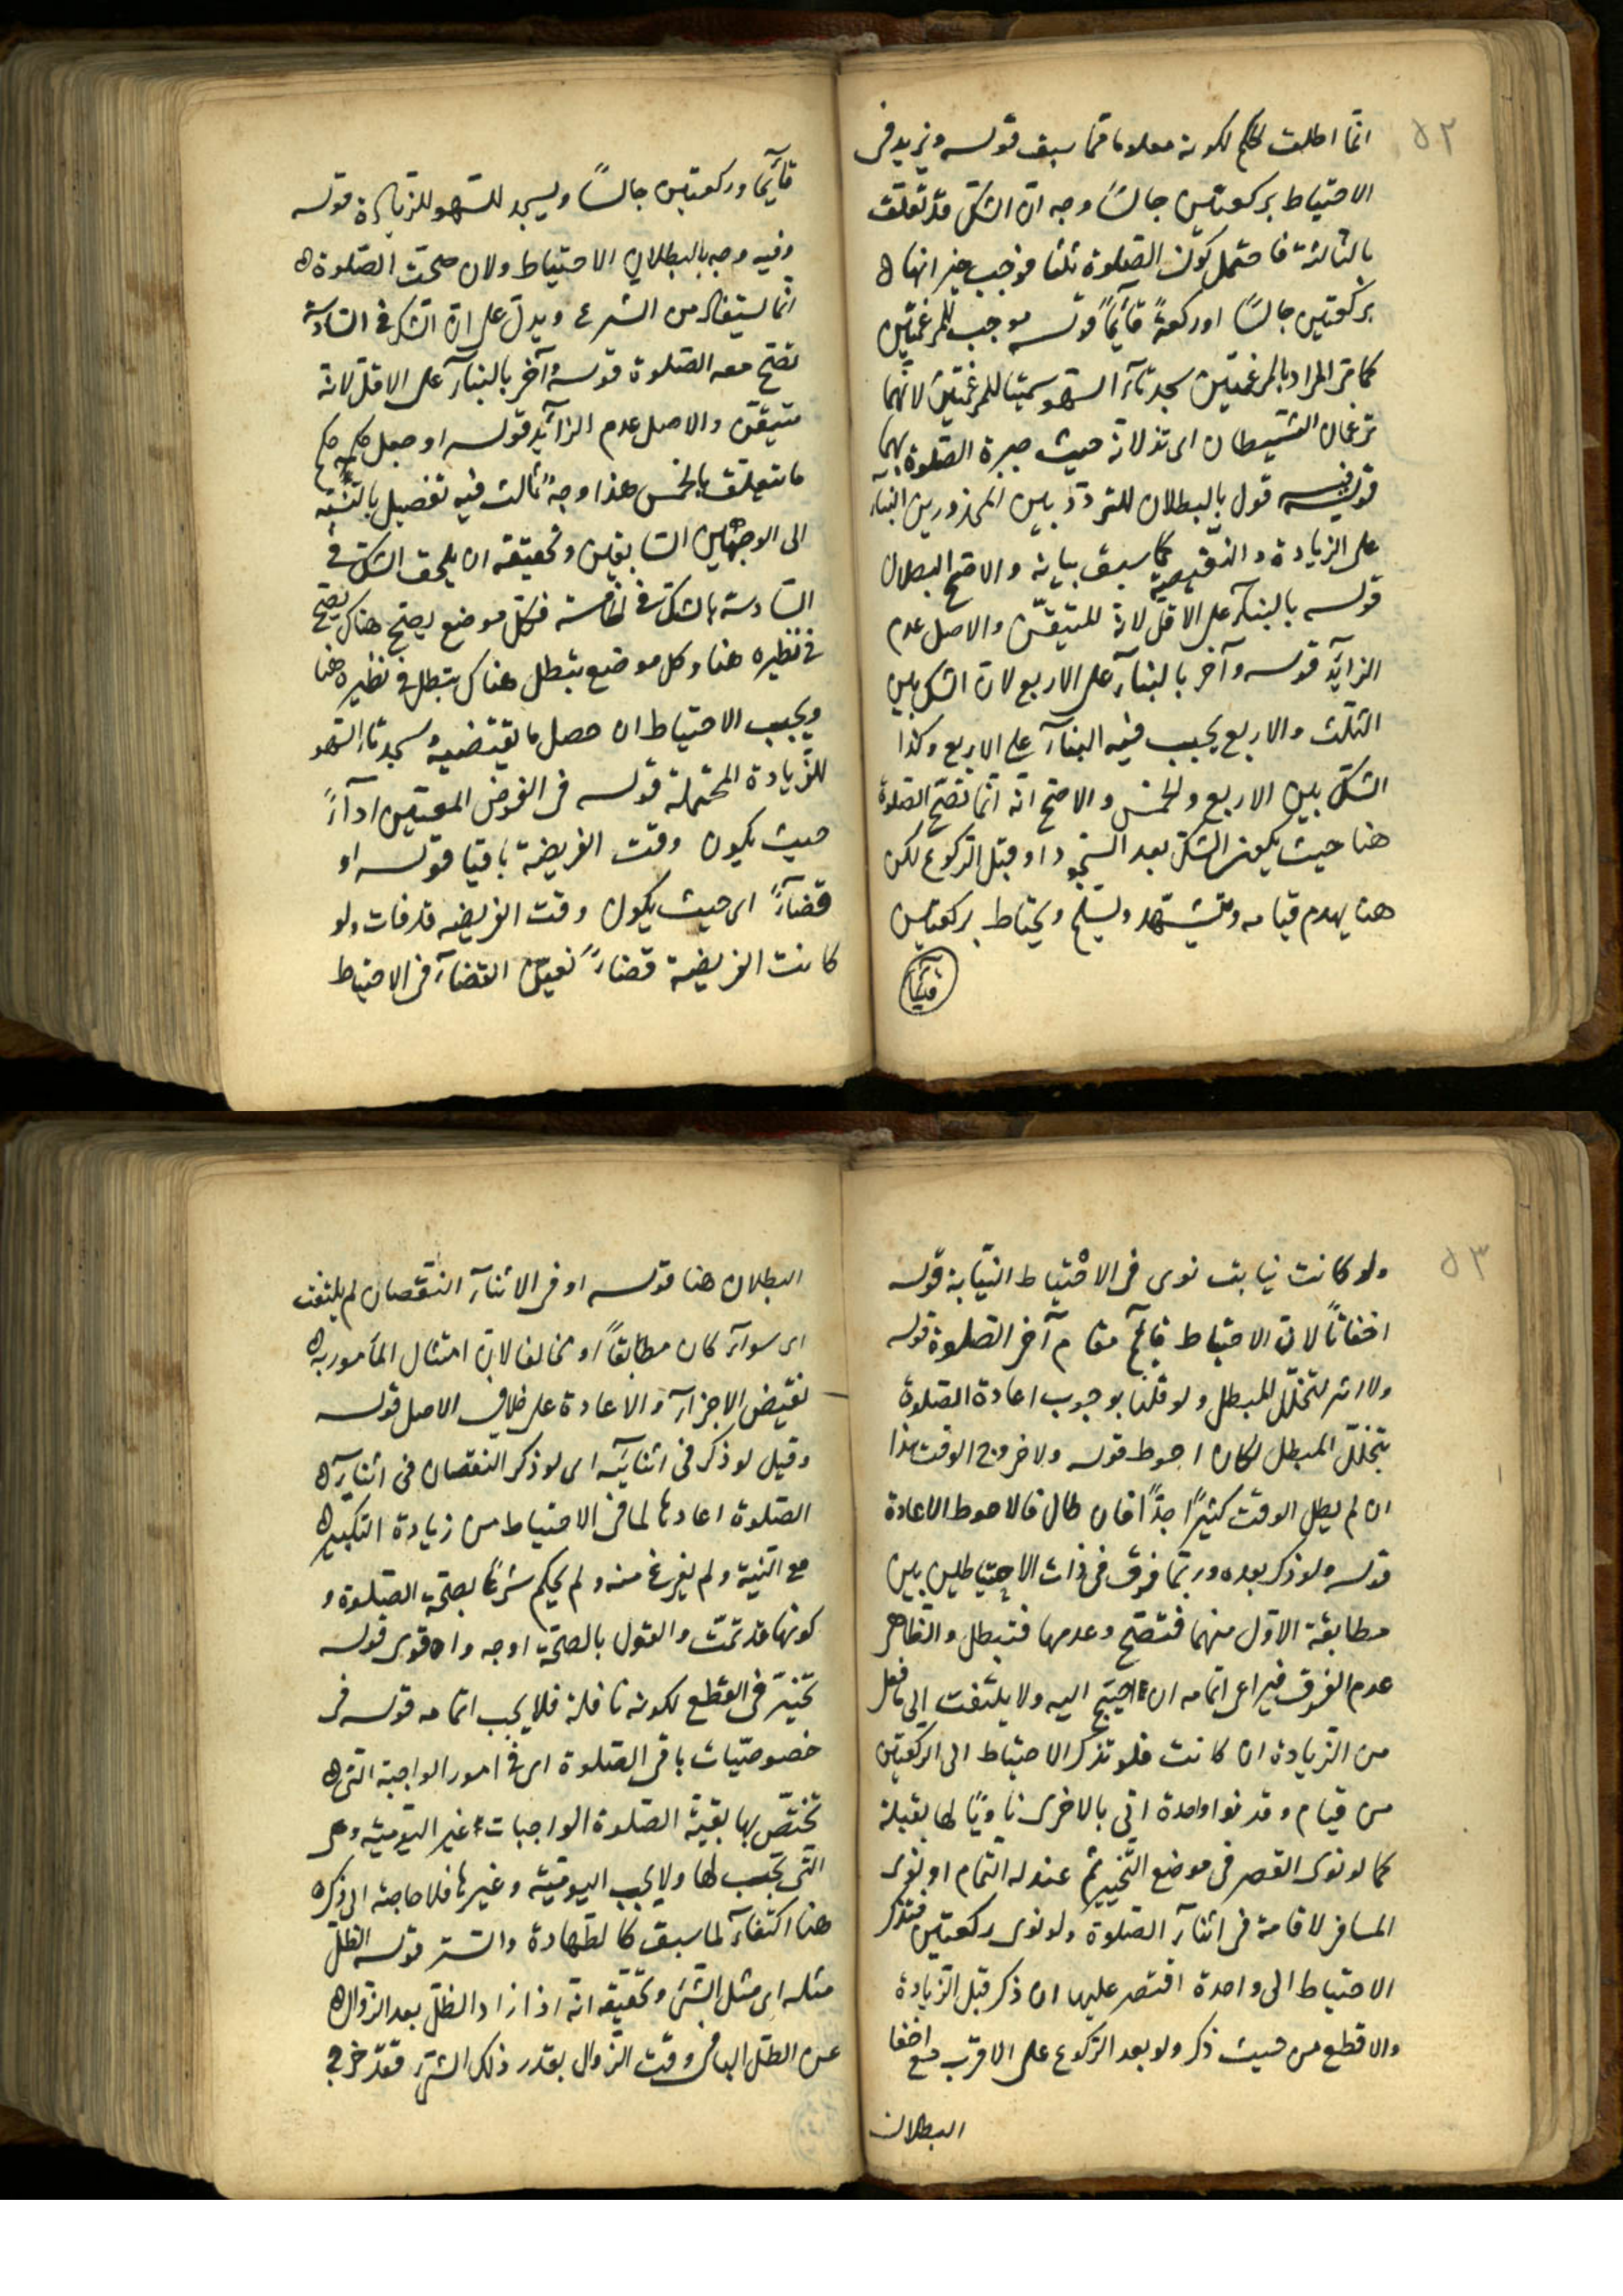 ٥٢
انّما اطلق الحكم لكونه معلوما ممّا سبق قوله ونزيد في
الاحتياط بركعتين جالسًا وجه انّ الشكّ قد تعلّق
بالثالثة فاحتمل كون الصّلوة ثلثا فوجب جبرانها
بركعتين جالسًا او ركعةً قآئمًا قوله موجب للمرغمتين
كما مرّ المراد بالمرغمتين سجدتآء السّهو سمّيتا للمرغمتين لانّهما
ترغمان الشّيطان اى تذلانه حيث جبرة الصّلوة بهما
قوله وفيه قول بالبطلان للتردّد بين المحذورين البناء
على الزيادة والنّقيصة كما سبق بيانه والاصحّ البطلان
قوله بالبنآء على الاقلّ لانه المتيقّن والاصل عدم
الزآئد قوله وآخر بالبنآء على الاربع لانّ الشك بين
الثلث والاربع يجب فيه البنآء على الاربع وكذا
الشكّ بين الاربع والخمس والاصحّ انّه انّما تصحّ الصّلوة
هنا حيث يكون الشكّ بعد السّجود او قبل الرّكوع لكن
هنا يهدم قيامه ويتشهّد ويسلّم ويحتاط بركعتين
قآئمًا
قآئمًا وركعتين جالسًا ويسجد للسّهو للزّيادة قوله
وفيه وجه بالبطلان الاحتياط ولان صحّت الصّلوة
انّما يستفاد من الشرع ويدلّ على انّ الشّك في السّادسة
تصحّ معه الصّلوة قوله وآخر بالبنآء على الاقلّ لانّه
متيقّن والاصل عدم الزآئد قوله او جعل حكمه حكم
ما يتعلّق بالخمس هذا وجهٌ ثالث فيه تفصيل بالنّسبة
الى الوجهين السّابقين وتحقيقه ان يلحق الشكّ في
السّادسة بالشكّ في الخامسة فكلّ موضع يصحّ هناك يصحّ
في نظيره هنا وكل موضع يبطل هناك يبطل في نظيره هنا
ويجب الاحتياط ان حصل ما يقتضيه وسجدتآء السّهو
للزّيادة المحتملة قوله في الفرض المعيّن ادآءً
حيث يكون وقت الفريضة باقيا قوله او
قضآءً اى حيث يكون وقت الفريضه قد فات ولو
كانت الفريضة قضاءً تعيّن القضآء في الاحتياط
٥٣
ولو كانت نيابت نوى في الاحتياط النّيابة قوله
اخفاتًا لانّ الاحتياط قآئم مقام آخر الصّلوة قوله
ولا اثر لتخلّل المبطل ولو قلنا بوجوب اعادة الصّلوة
بتخلّل المبطل لكان احوط قوله ولا خروج الوقت هذا
ان لم يطل الوقت كثيرًا جدًّا فان طال فالاحوط الاعادة
قوله ولو ذكر بعده وربّما فرق في ذات الاحتياطين بين
مطابقة الاوّل منهما فتصحّ وعدمها فتبطل والظّاهر
عدم الفرق فيراعى اتمامه ان احتيج اليه ولا يلتفت الى ما فعل
من الزّيادة ان كانت فلو تذكر الاحتياط الى الركعتين
من قيام وقد نوا واحدة اتى بالاخرى ناويًا لها بقبلة
كما لو نوى القصر في موضع التّخيير ثم عنّ له التّمام او نوى
المسافر لاقامة في اثنآء الصّلوة ولو نوى ركعتين فتذكر
الاحتياط الى واحدة اقتصر عليها ان ذكر قبل الزّيادة
والا قطع من حيث ذكر ولو بعد الرّكوع على الاقرب مع اخفا
البطلان
البطلان هنا قوله او في الاثنآء النّقصان لم يلتفت
اى سوآء كان مطابقًا او مخالفا لانّ امتثال المأمور به
نقيض الاجزآء والاعادة على خلاف الاصل قوله
وقيل لو ذكر في اثنآئه اى لو ذكر النقصان في اثنآء
الصّلوة اعادها لما في الاحتياط من زيادة التكبير
مع النّية ولم يفرغ منه ولم يحكم شرعًا بصحّة الصّلوة و
كونها قد تمّت والقول بالصحّة اوجه واقوى قوله
تخيّر في القطع لكونه نافلة فلا يجب اتمامه قوله في
خصوصيّات باقي الصّلوة اى في امور الواجبة التى
تختصّ بها بقيّة الصّلوة الواجبات غير اليّوميّة وهى
التّى تجب لها ولا يجب اليوميّة وغيرها فلا حاجة الى ذكره
هنا اكتفآء لما سبق كالطّهارة والستر قوله الظلّ
مثله اى مثل الشّئ وتحقيقه انّه اذا زاد الظلّ بعد الزّوال
عن الظلّ الباقى وقت الزّوال بقدر ذلك الشئ فقد خرج